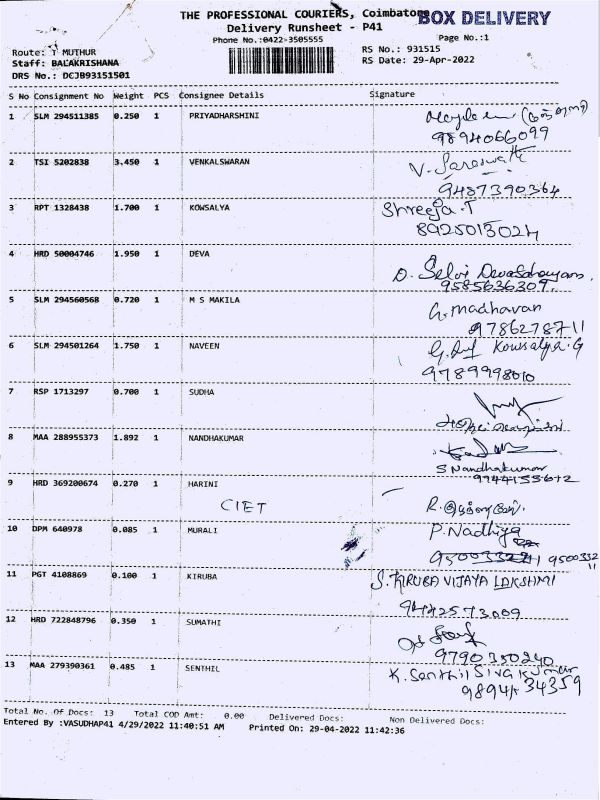 THE PROFESSIONAL COURIERS, Coimbatore
BOX DELIVERY
Delivery Runsheet - P41
Phone No.:0422-3505555
Page No.:1
Route: T MUTHUR
RS No.: 931515
Staff: BALAKRISHANA
RS Date: 29-Apr-2022
DRS No.: DCJB93151501
S No Consignment No Weight PCS Consignee Details Signature
1 SLM 294511385 0.250 1 PRIYADHARSHINI
9894066099
2 TSI 5202838 3.450 1 VENKALSWARAN V. Saraswathi
9487390364
3 RPT 1328438 1.700 1 KOWSALYA Shreeja.T
8925015024
4 HRD 50004746 1.950 1 DEVA D. Selvi Devasahayam
9585636307.
5 SLM 294560568 0.720 1 M S MAKILA G. madhavan
9786278711
6 SLM 294501264 1.750 1 NAVEEN Kowsalya.G
9789998010
7 RSP 1713297 0.700 1 SUDHA
8 MAA 288955373 1.892 1 NANDHAKUMAR
S Nandhakumar
9944155612
9 HRD 369200674 0.270 1 HARINI
CIET
10 DPM 640978 0.085 1 MURALI P. Nadhiya
11 PGT 4108869 0.100 1 KIRUBA S. KIRUBA VIJAYA LAKSHMI
9442573009
12 HRD 722848796 0.350 1 SUMATHI
9790350240
13 MAA 279390361 0.485 1 SENTHIL K. Senthil Sivakumar
34359
Total No. Of Docs: 13 Total COD Amt: 0.00 Delivered Docs: Non Delivered Docs:
Entered By :VASUDHAP41 4/29/2022 11:40:51 AM Printed On: 29-04-2022 11:42:36